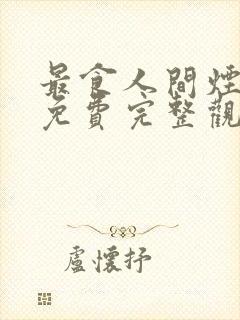 最食人間煙
免費完整觀
盧懷抒